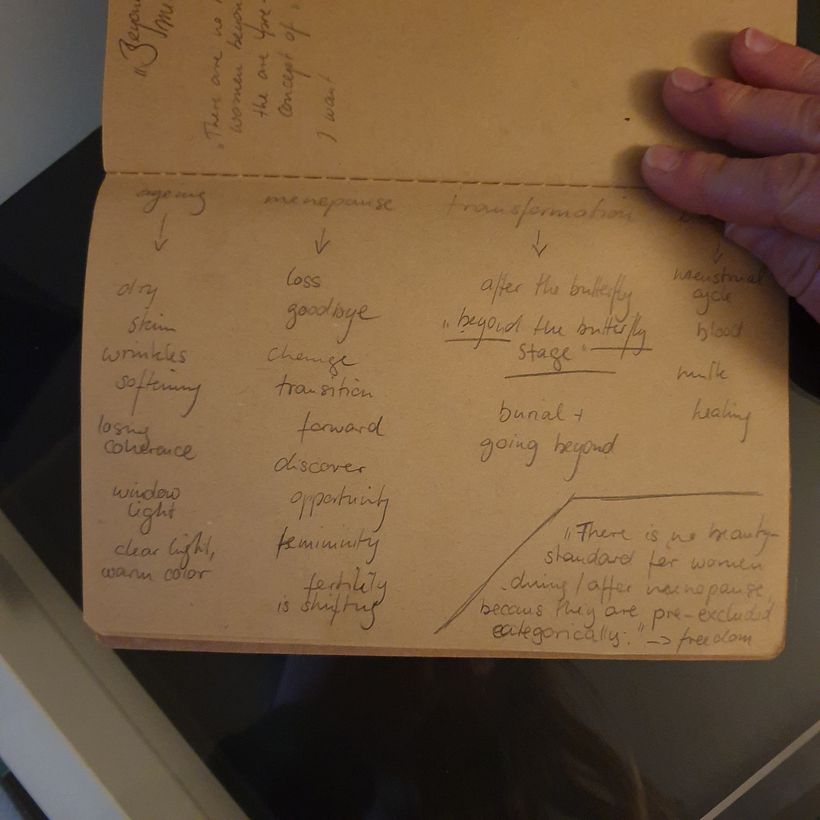 "Beyond
me
"There are no
women beyond
the are "pre-
concept of
I want
ageing
dry
skin
wrinkles
softening
losing
coherence
window
light
clear light,
warm color
menopause
loss
goodbye
change
transition
forward
discover
opportunity
femininity
fertility
is shifting
transformation
after the butterfly
"beyond the butterfly
stage"
burial +
going beyond
menstrual
cycle
blood
milk
healing
"There is no beauty-
standard for women
during / after menopause,
becaus they are pre-excluded
categorically." -> freedom